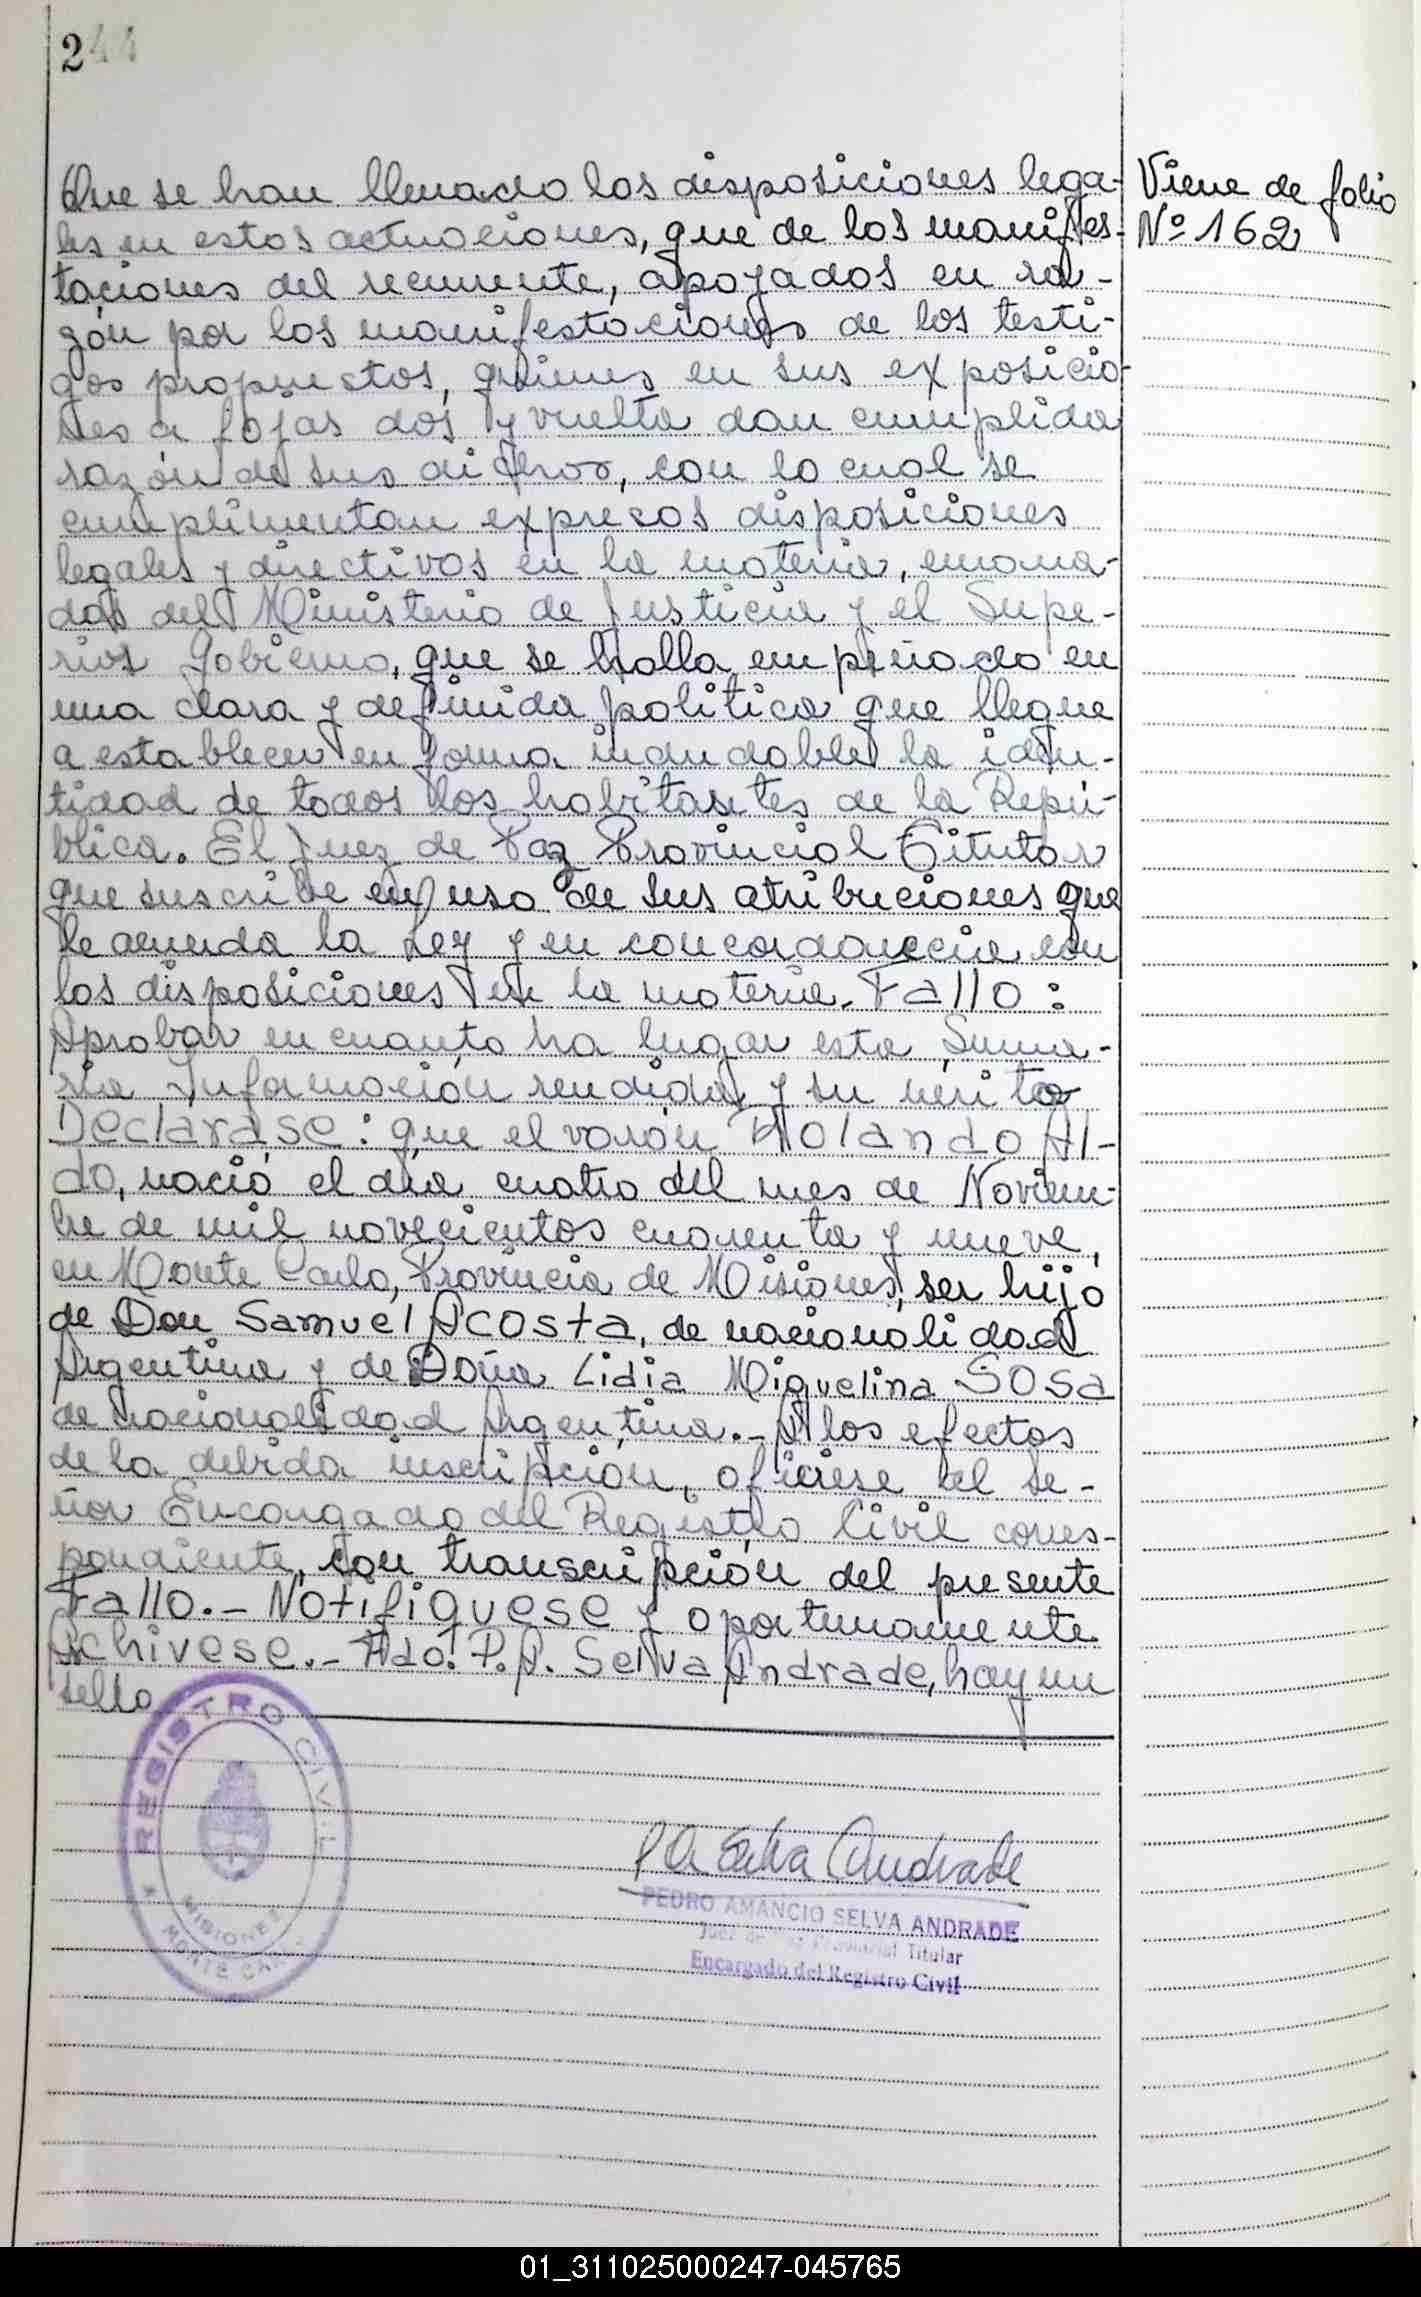 244
Que se han llenado las disposiciones lega-
les en estas actuaciones, que de las manifes-
taciones del recurrente, apoyadas en ra-
zón por las manifestaciones de los testi-
gos propuestos, quienes en sus exposicio-
nes a fojas dos y vuelta dan cumplida
razón de sus dichos, con lo cual se
cumplimentan expresas disposiciones
legales y directivas en la materia, emana-
das del Ministerio de Justicia y el Supe-
rior Gobierno, que se halla empeñado en
una clara y definida politica que llegue
a establecer en forma indudable la iden-
tidad de todos los habitantes de la Repú-
blica. El Juez de Paz Provincial Titular
que suscribe en uso de sus atribuciones que
le acuerda la Ley y en concordancia con
las disposiciones en la materia. Fallo:
Aprobar en cuanto ha lugar esta Suma-
ria Información rendida y su merito
Declarase: que el varón Rolando Al-
do, nació el dia cuatro del mes de Noviem-
bre de mil novecientos cuarenta y nueve,
en Monte Carlo, Provincia de Misiones, ser hijo
de Don Samuel Acosta, de nacionalidad
Argentina y de Doña Lidia Miguelina Sosa
de nacionalidad Argentina.- A los efectos
de la debida inscripción, ofiiese al Se-
ñor Encargado del Registro Civil corres-
pondiente, con transcripción del presente
Fallo.- Notifiquese y oportunamente
Achivese.- Fdo. P.A. Selva Andrade, hay un
sello
Viene de folio
Nº 162
REGISTRO CIVIL
MISIONES
MONTE CAR
P A Selva Andrade
PEDRO AMANCIO SELVA ANDRADE
Juez de Paz Provincial Titular
Encargado del Registro Civil
01_311025000247-045765